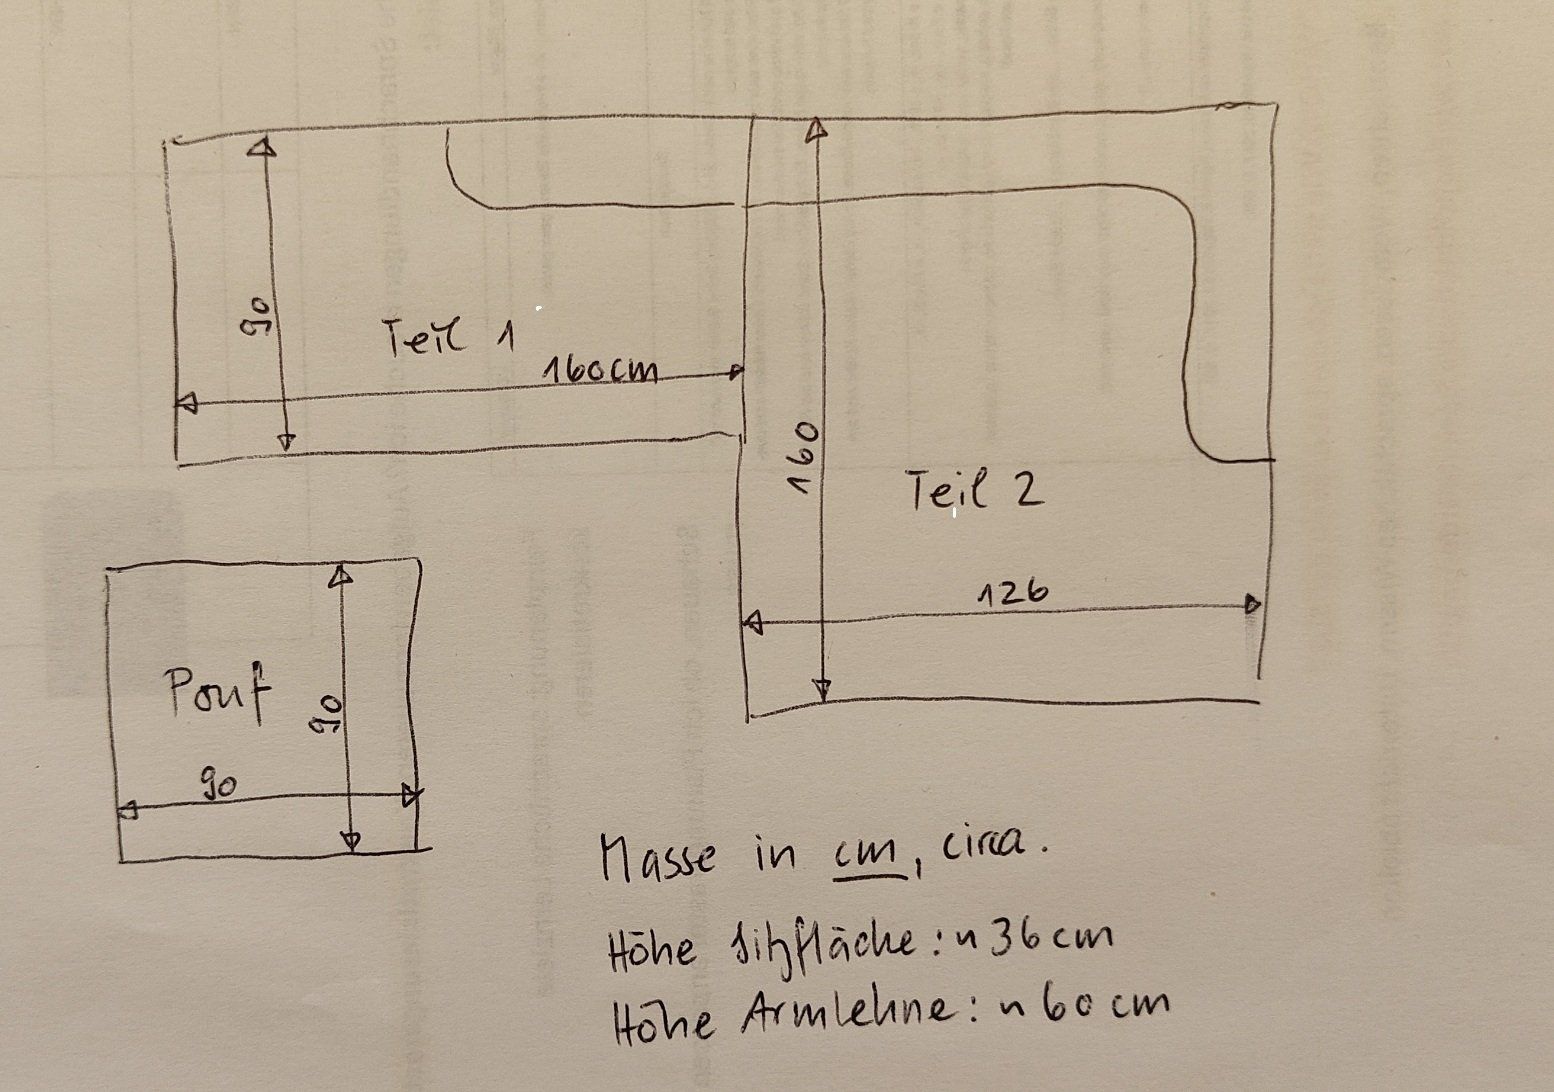 90
Teil 1
160cm
160
Teil 2
126
Pouf
90
90
Masse in cm, circa.
Höhe Sitzfläche: ~ 36 cm
Höhe Armlehne: ~ 60 cm